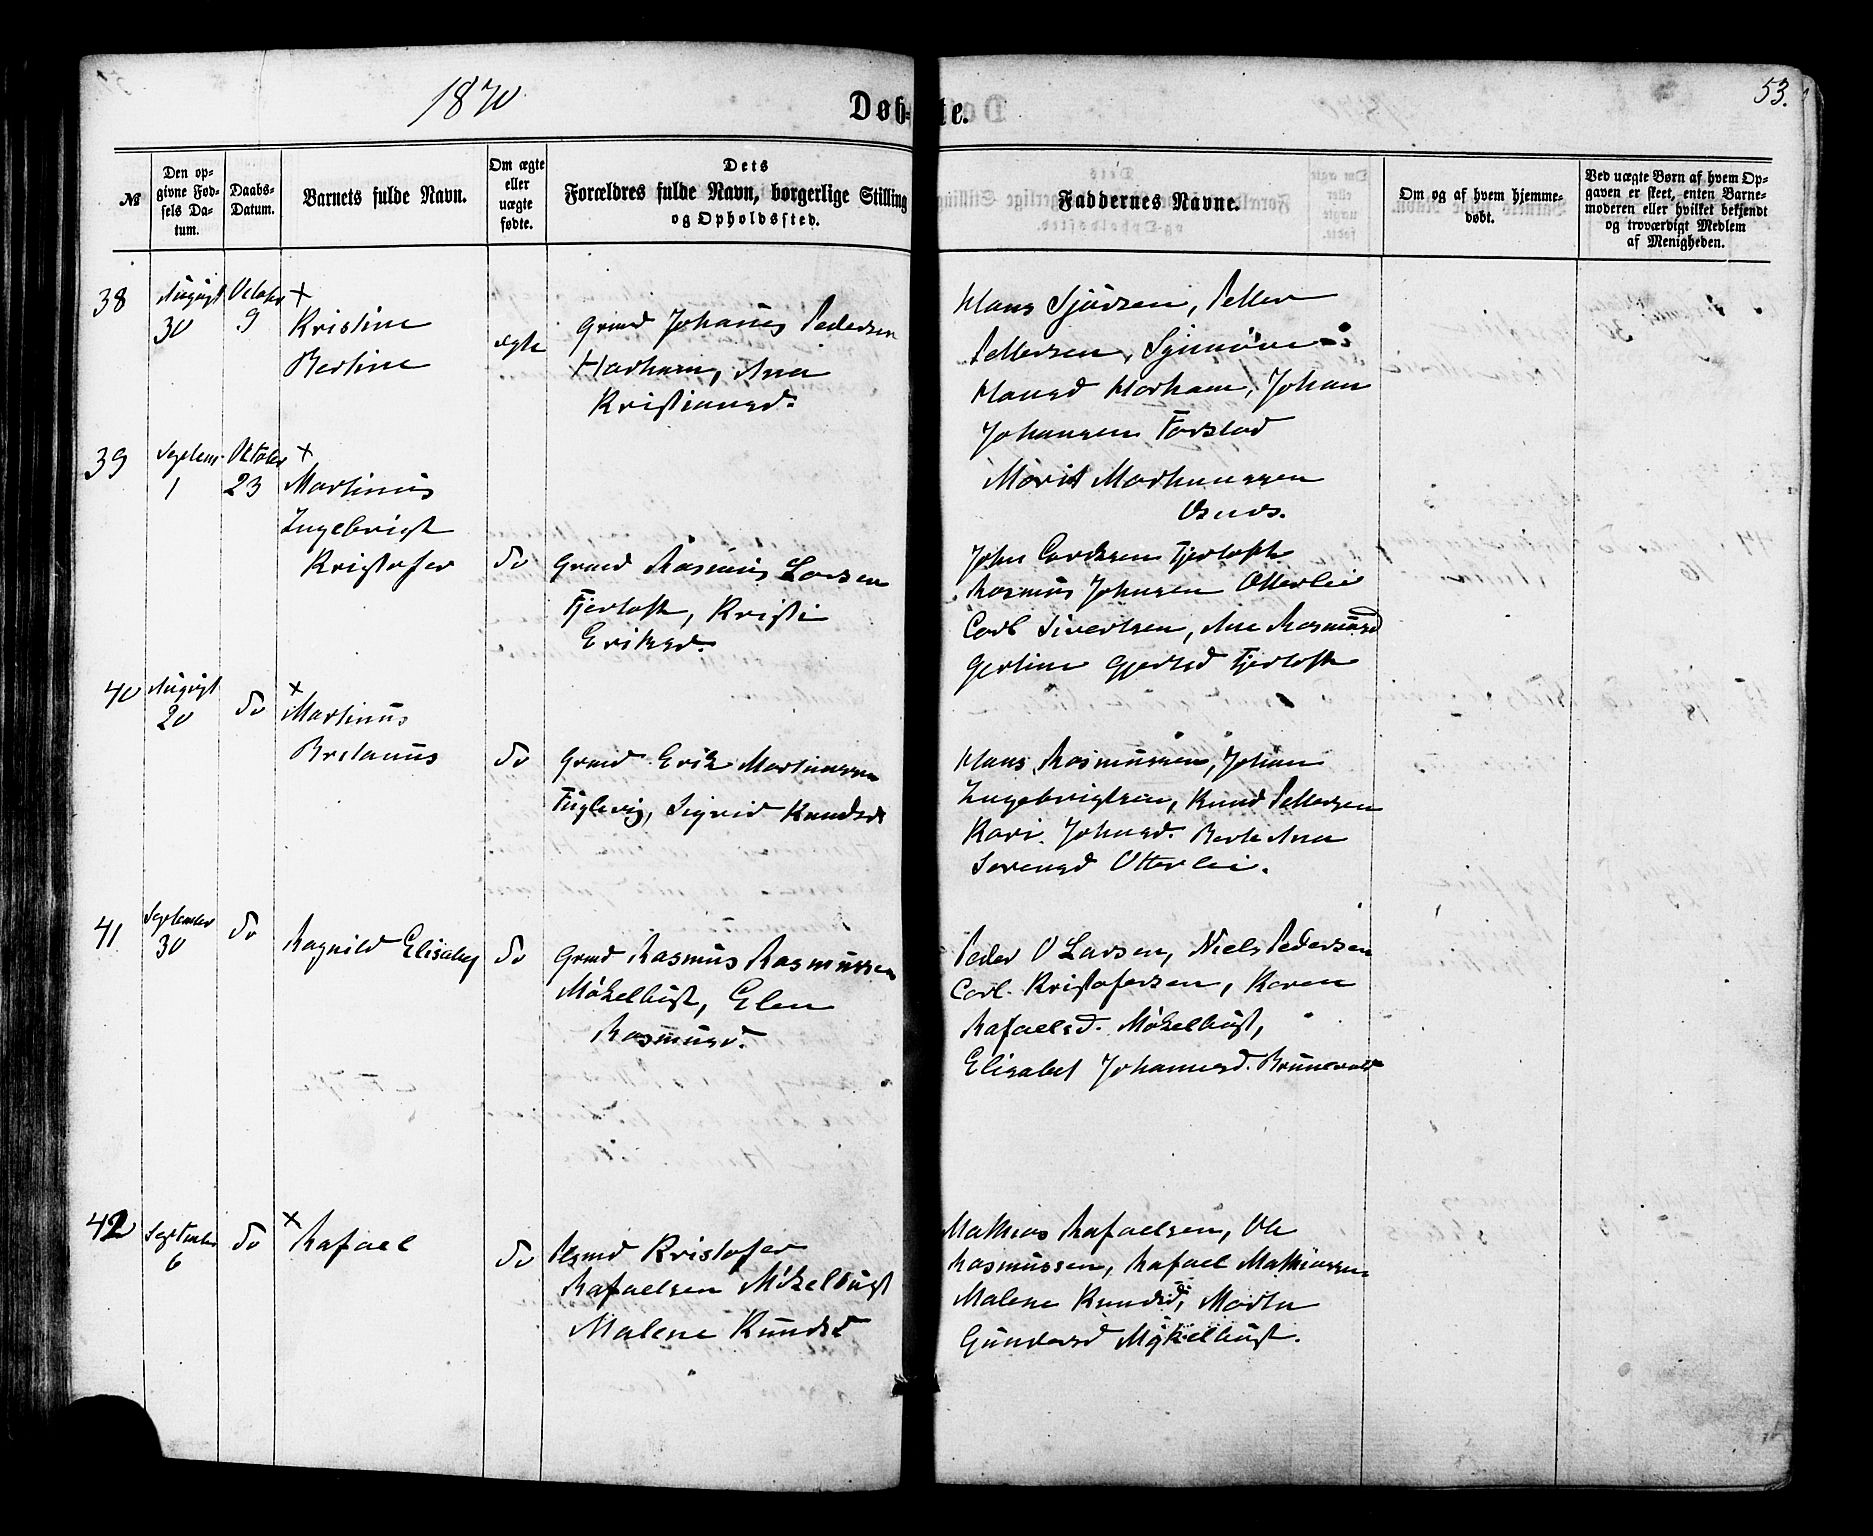 1870
Døb-te.
53.
№
Den op-
givne Fød-
sels Da-
tum.
Daabs-
Datum.
Barnets fulde Navn.
Om ægte
eller
uægte
fødte.
Dets
Forældres fulde Navn, borgerlige Stilling
og Opholdssted.
Faddernes Navne.
Om og af hvem hjemme-
døbt.
Ved uægte Børn af hvem Op-
gaven er skeet, enten Barne-
moderen eller hvilket bekjendt
og troværdigt Medlem
af Menigheden.
38
August
30
October
9
+
Kristine
Bertine
ægte
Grmd Johanes Pedersen
Harham, Ana
Kristiansd.
Hans Sjursen, Petter
Pettersen, Synnøve
Hansd Harham, Johan
Johansen Farstad
Marit Marhunssen
Osnes.
39
Septem
1
Oktober
23
+
Martinus
Ingebrigt
Kristofer
do
Grmd Rasmus Larsen
Fjertoft, Kristi
Eriksd.
John Fjertoft
Rasmus Johnsen Otterlei
Carl Sivertsen, Ane Rasmusd
Gertine Gjertsd Fjertoft
40
August
20
do
+
Martinus
Bretanus
do
Grmd Erik Martinussen
Fuglevig, Sigrid Knudsd
Hans Rasmussen, Johan
Ingebrigtsen, Knud Pettersen
Kari Johnsd. Berte Ana
Sorensd Otterlei.
41
September
30
do
Ragnild Elisabet
do
Grmd Rasmus Rasmussen
Mökelbust, Elen
Rasmusd.
Peder O Larsen, Niels Pedersen
Carl Kristofersen, Karen
Rafaelsd. Mökelbust,
Elisabet Johannesd. Brunsvold
42
September
6
do
+
Rafael
do
Kristofer
Rafaelsen Mökelbust
Malene Knudsd
Mathias Rafaelsen, Ole
Rasmussen, Rafael Mathiassen
Malene Knudsd, Marta
Gundersd Mykelbust.